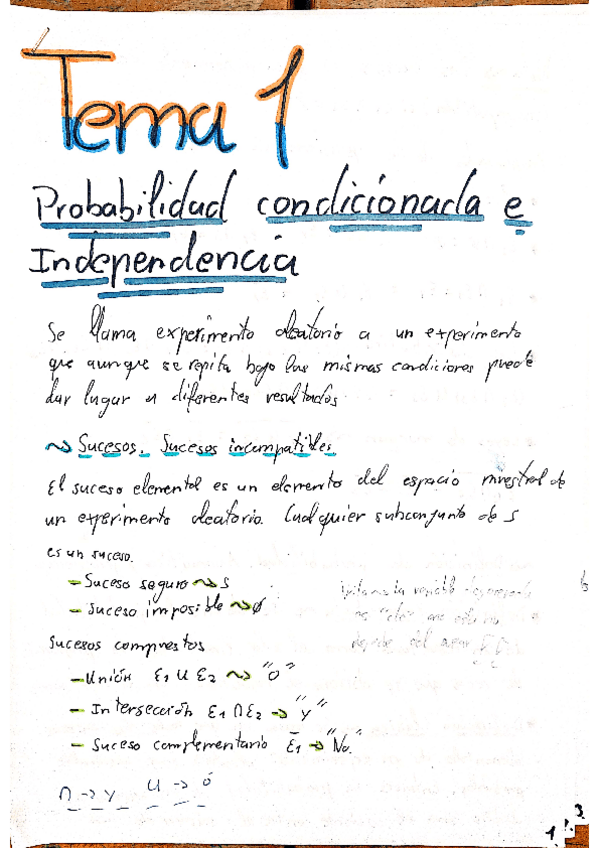 Tema 1
Probabilidad condicionada e
Independencia
Se llama experimento aleatorio a un experimento
que aunque se repita bajo las mismas condiciones puede
dar lugar a diferentes resultados
~> Sucesos. Sucesos incompatibles
El suceso elemental es un elemento del espacio muestral de
un experimento aleatorio. Cualquier subconjunto de S
es un suceso.
- Suceso seguro ~> S
- Suceso imposible ~> ∅
Sucesos compuestos
- Unión E1 ∪ E2 ~> "O"
- Intersección E1 ∩ E2 -> "Y"
- Suceso complementario Ē1 -> "No"
∩ -> Y ∪ -> Ó